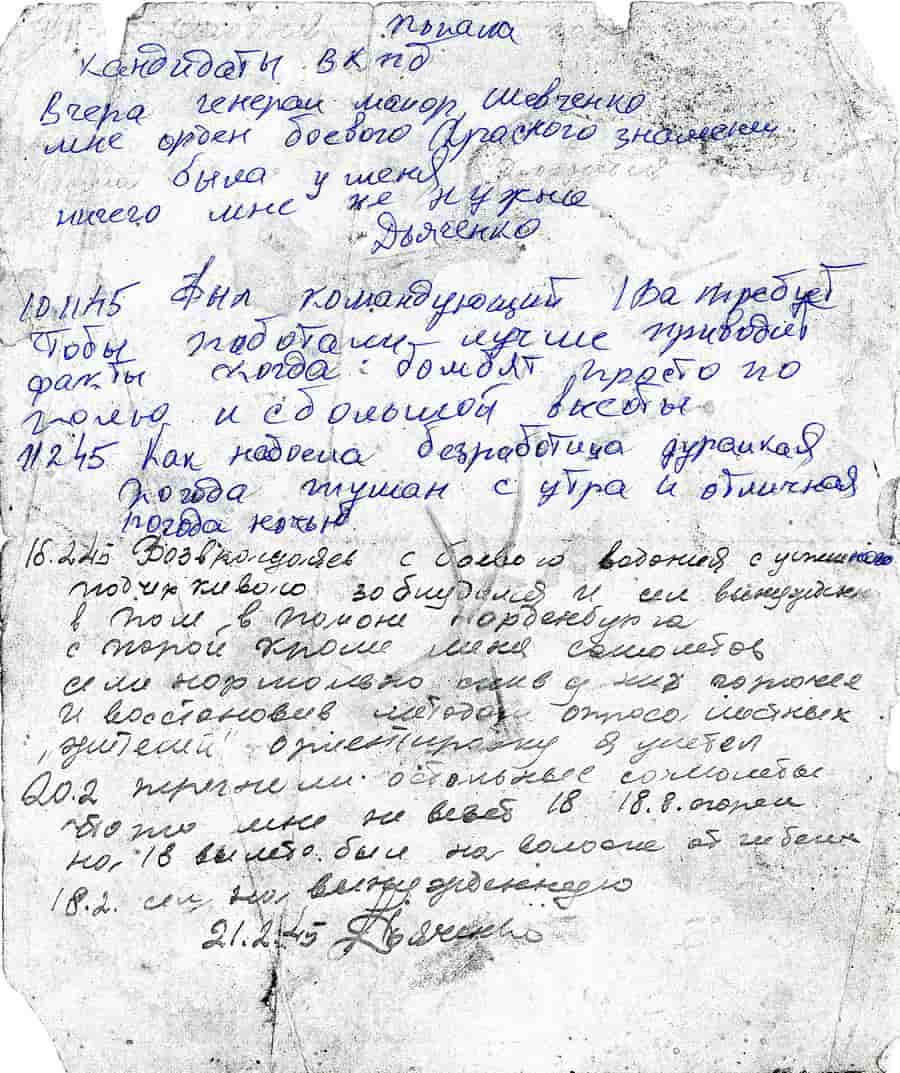 попала
кандидаты ВКПб
Вчера генерал майор Шевченко
мне орден боевого Краского знамени
была у меня
ничего мне не нужно
Дьяченко
10.1.45 Был командующий 1 Ва требует
Чтобы работали лучше приводит
факты когда бомбят просто по
полю и с большой высоты
11 2 45 Как надоела безработица дурацкая
погода туман с утра и отличная
погода ночью
16.2.45 Возвращаясь с боевого задания с
заблудился и сел вынужденно
в поле в районе Норденбурга
с парой кроме меня самолетов
сели нормально слив у них горючее
И восстановив методом опроса местных
"жителей" ориентировку я улетел
20.2 перегнали остальные самолеты
Что то мне не везет 18 18.8. горел
на 18 вылете был на волоске от гибели
18.2. сел на вынужденную
21.2.45 Дьяченко